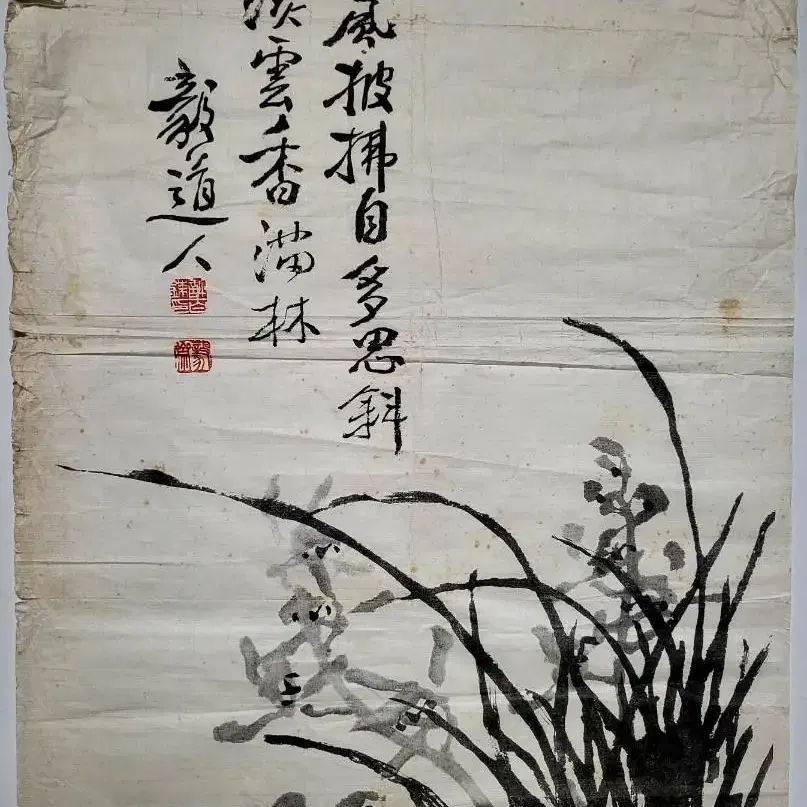 風披拂自多思斜
淡雲香滿林
毅道人